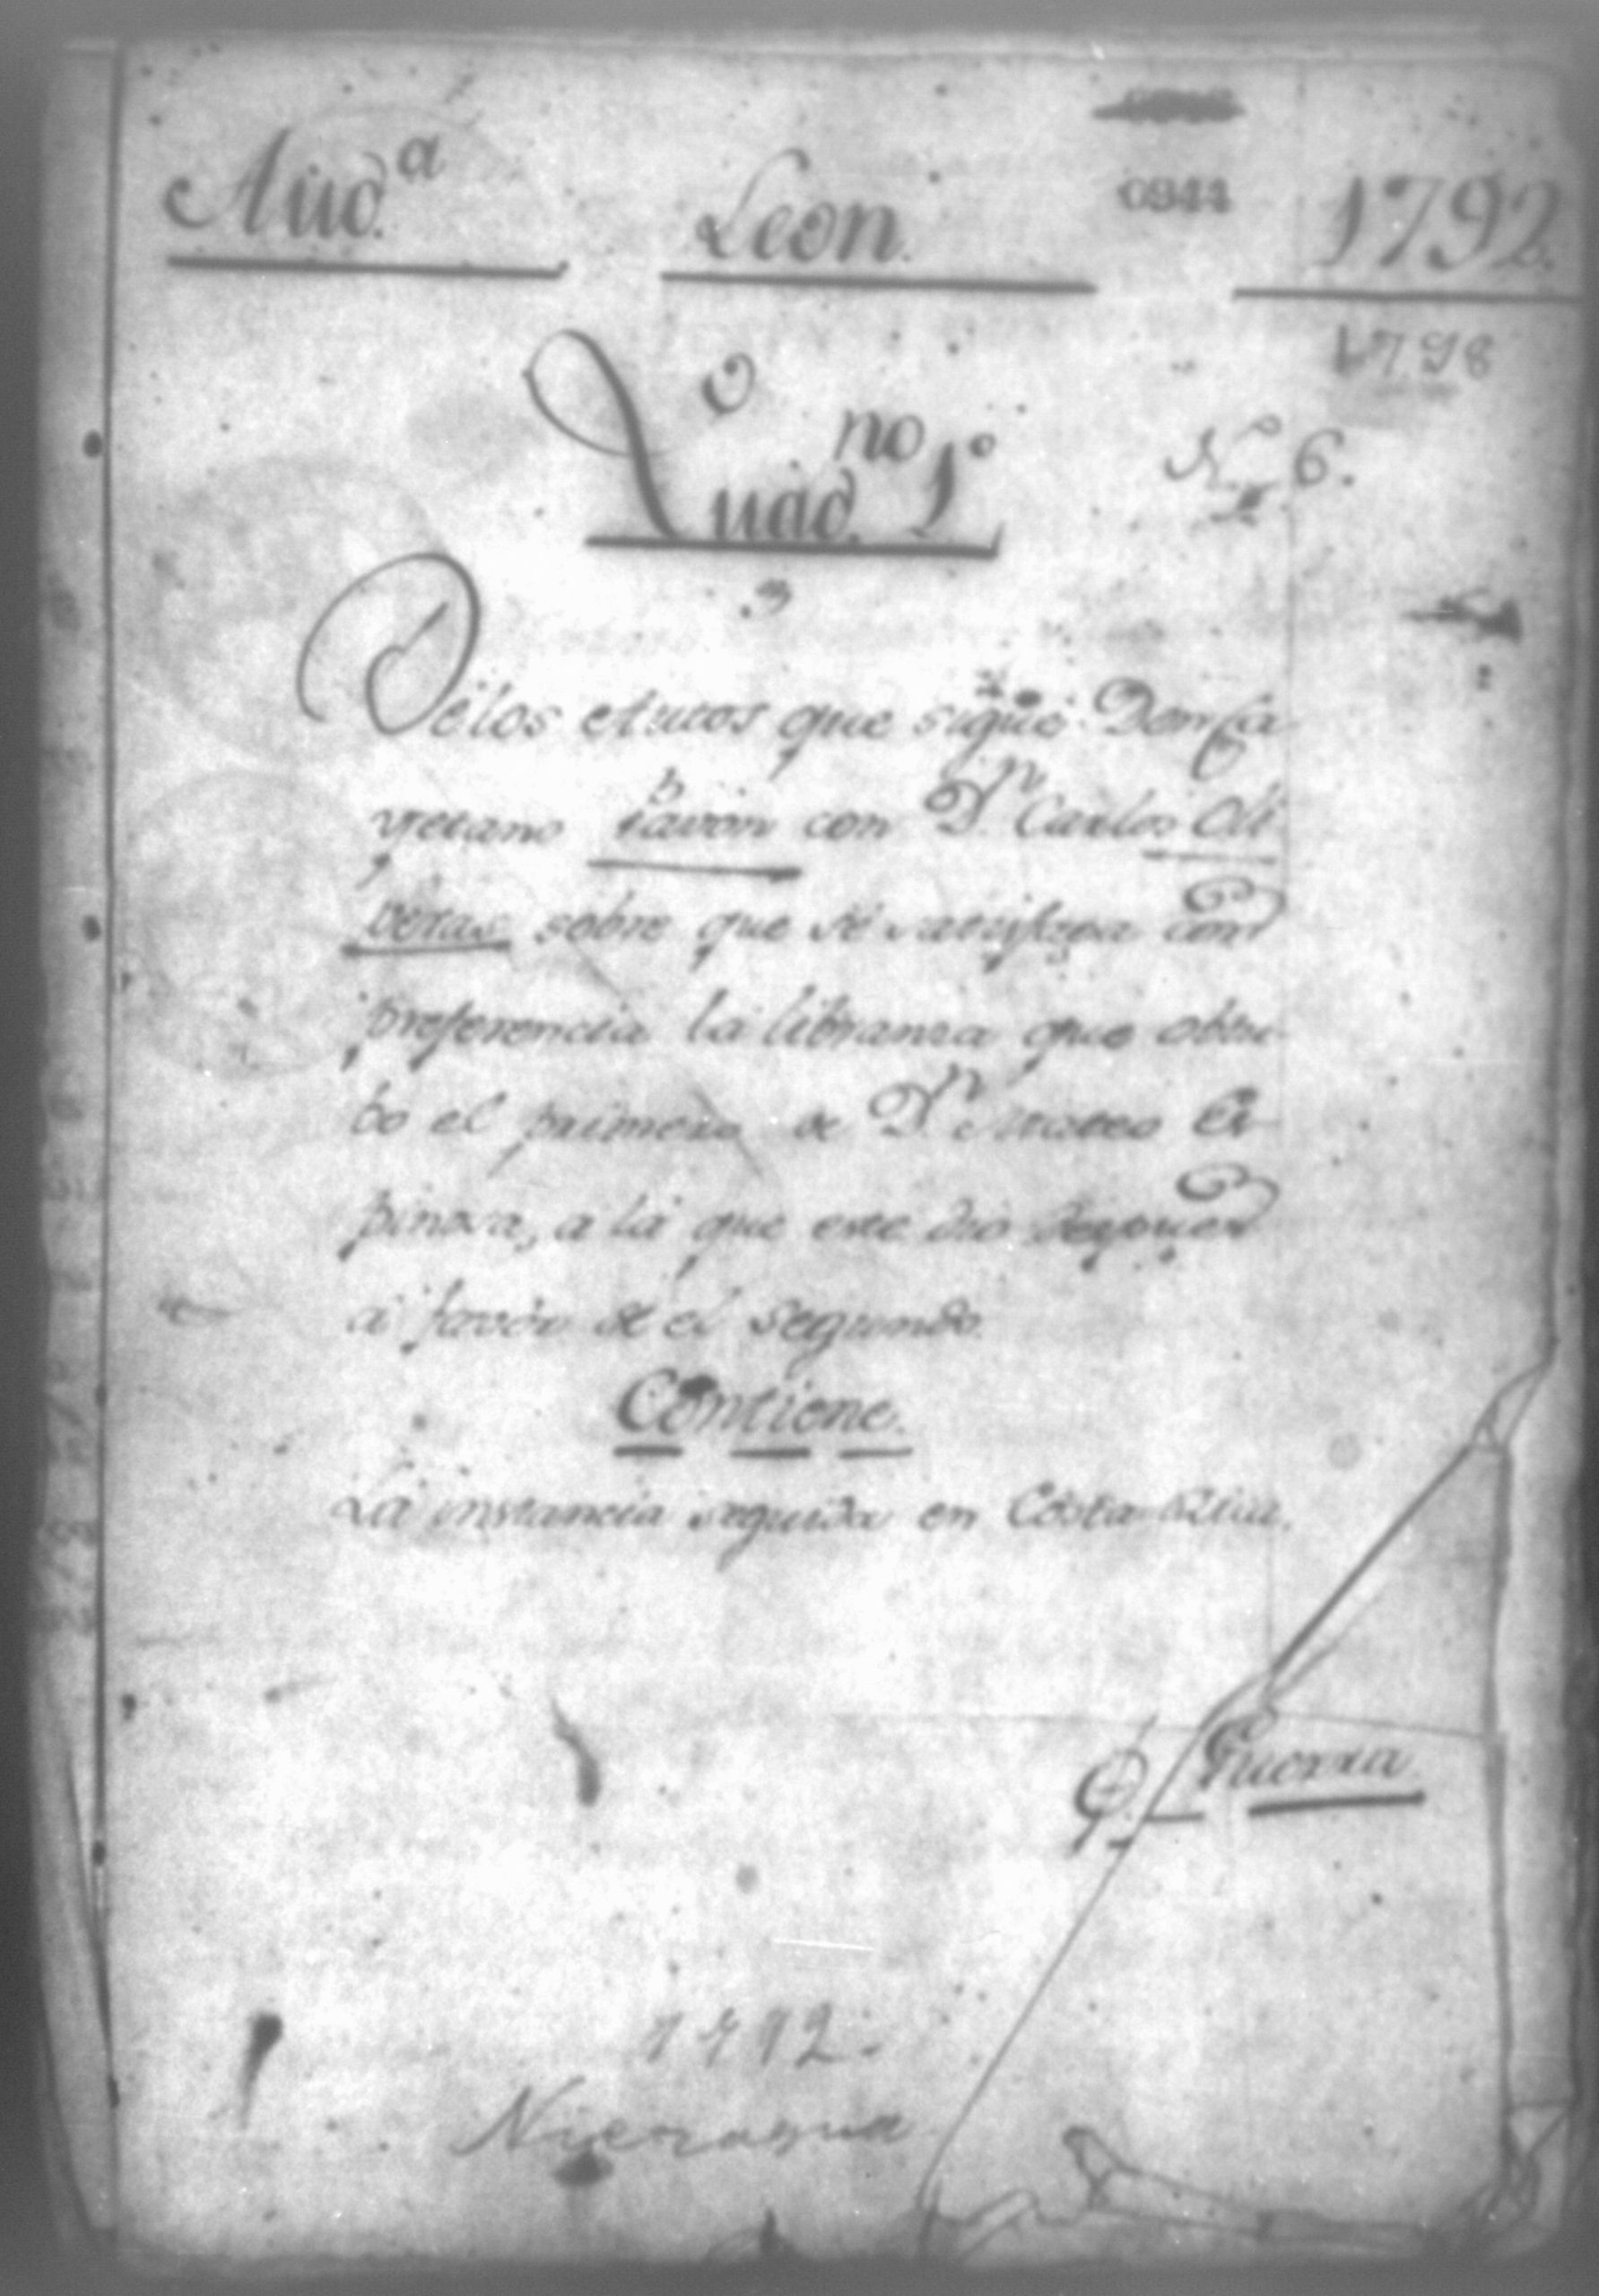 Aud.ª Leon. 0944 1792.
1798
Quad.no 1º Nº 6.
De los Autos que sigue Don Ca
yetano Pavon con D.n Carlos Oli
beras sobre que se satisfaga con
preferencia la libranza que obtu
bo el primero de D.n Mateo Es
pinosa, a la que este dio despues
á favor de el segundo.
Contiene.
La instancia seguida en Costa Rica.
Guerra
1792.
Nicaragua